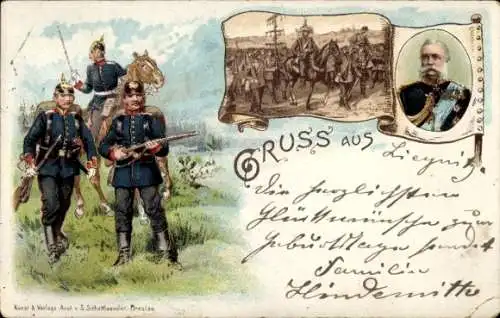 GRUSS AUS
Liegnitz
Die herzlichsten
Glückwünsche zum
Geburtstage sendet
Familie
Hindemith
Kunst & Verlags-Anst. v. S. Schottlaender, Breslau